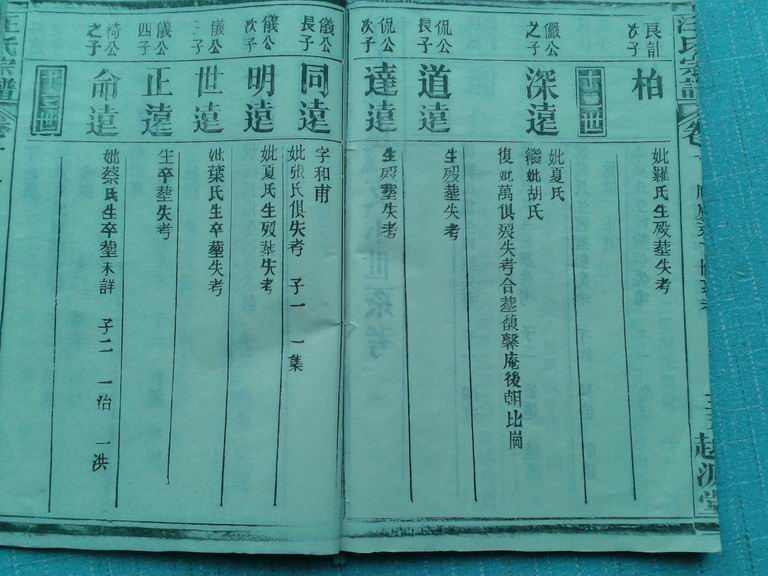 汪氏宗譜
越派堂
良計次子
柏
妣羅氏生歿塟失考
儼公之子
深遠
妣夏氏
繼妣胡氏
復妣萬俱歿失考合塟馥馨庵後朝比崗
侃公長子
道遠
生歿塟失考
侃公次子
達遠
生歿塟失考
儀公長子
同遠
字和甫
妣張氏俱失考 子一 一集
儀公次子
明遠
妣夏氏生歿塟失考
儀公三子
世遠
妣葉氏生卒塟失考
儀公四子
正遠
生卒塟失考
椅公之子
命遠
妣蔡氏生卒塟未詳 子二 一治 一洪
汪氏宗譜